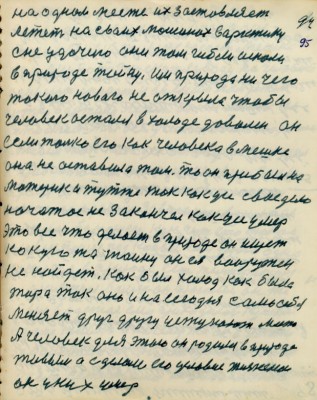 94
на одном месте их заставляет
95
лететь на своих машинах в Арктику
в природе тайну. Им природа ни чего
такого новаго не открыла чтобы
человек остался в холоде доволен он
если только его как человека в мешке
она не оставила там. То он прибыл на
материк и тут же так как уже свое дело
начатое не закончил как уже умер
это все что делает в природе он ищет
тайну он ея вооружен
не найдет. Как был холод как была
жара так оно и на сегодня само себя
меняет друг другу уступают место
А человек для этого он родился в природе
живым а сделали его условие
он у них умер